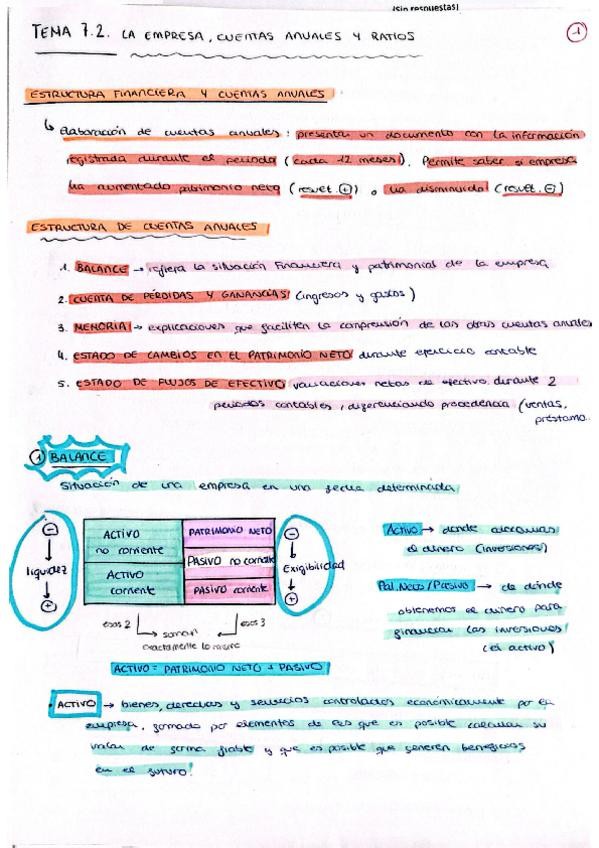 ¡sin respuestas!
1
TEMA 7.2. LA EMPRESA, CUENTAS ANUALES Y RATIOS
ESTRUCTURA FINANCIERA Y CUENTAS ANUALES
↳ Elaboración de cuentas anuales: presenta un documento con la información
registrada durante el periodo (cada 12 meses). Permite saber si empresa
ha aumentado patrimonio neto (result. +) o ha disminuido (result. -)
ESTRUCTURA DE CUENTAS ANUALES
1. BALANCE → refleja la situación financiera y patrimonial de la empresa
2. CUENTA DE PÉRDIDAS Y GANANCIAS (ingresos y gastos)
3. MEMORIA → explicaciones que faciliten la comprensión de las otras cuentas anuales
4. ESTADO DE CAMBIOS EN EL PATRIMONIO NETO durante ejercicio contable
5. ESTADO DE FLUJOS DE EFECTIVO variaciones netas de efectivo durante 2
periodos contables, diferenciando procedencia (ventas,
préstamo..
1 BALANCE
Situación de una empresa en una fecha determinada
- liquidez +
ACTIVO no corriente
ACTIVO corriente
PATRIMONIO NETO
PASIVO no corriente
PASIVO corriente
- Exigibilidad +
Activo → donde
el dinero (inversiones)
Pat. Neto/Pasivo → de dónde
obtenemos el dinero para
financiar las inversiones
(el activo)
esos 2 → suman ← esos 3
exactamente lo mismo
ACTIVO = PATRIMONIO NETO + PASIVO
· ACTIVO → bienes, derechos y servicios controlados económicamente por la
empresa, formado por elementos de los que es posible calcular su
valor de forma fiable y que es posible que generen beneficios
en el futuro!